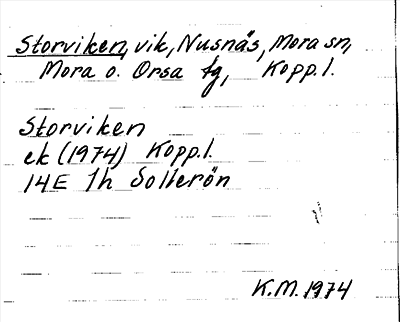 Storviken, vik, Nusnäs, Mora sn,
Mora o. Orsa tg, Kopp.l.
Storviken
ek (1974) Kopp.l.
14E 1h Sollerön
K.M. 1974